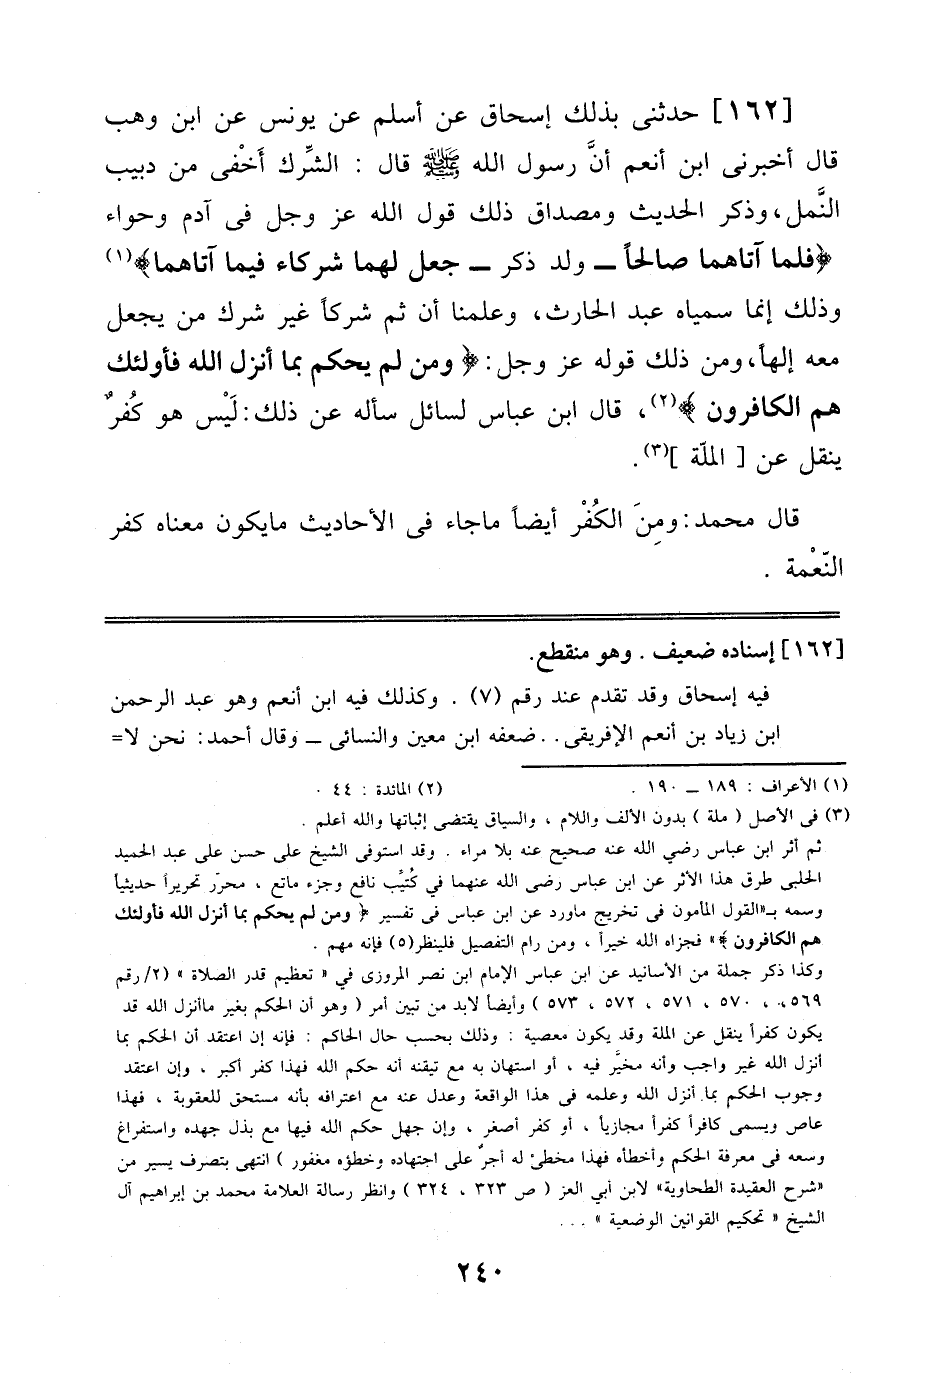 [١٦٢] حدثنى بذلك إسحاق عن أسلم عن يونس عن ابن وهب
قال أخبرنى ابن أنعم أنَّ رسول الله ﷺ قال : الشِّرك أَخْفى من دبيب
النَّمل، وذكر الحديث ومصداق ذلك قول الله عز وجل فى آدم وحواء
﴿فلما آتاهما صالحاً ــ ولد ذكر ــ جعل لهما شركاء فيما آتاهما﴾(١)
وذلك إنما سمياه عبد الحارث، وعلمنا أن ثم شركاً غير شرك من يجعل
معه إلهاً، ومن ذلك قوله عز وجل: ﴿ ومن لم يحكم بما أنزل الله فأولئك
هم الكافرون ﴾(٢)، قال ابن عباس لسائل سأله عن ذلك: لَيْس هو كُفرٌ
ينقل عن [ الملّة ](٣).
قال محمد: ومِنَ الكُفْر أيضاً ماجاء فى الأحاديث مايكون معناه كفر
النّعْمة .
[١٦٢] إسناده ضعيف . وهو منقطع.
فيه إسحاق وقد تقدم عند رقم (٧) . وكذلك فيه ابن أنعم وهو عبد الرحمن
ابن زياد بن أنعم الإفريقى . . ضعفه ابن معين والنسائى ــ وقال أحمد: نحن لا=
(١) الأعراف : ١٨٩ ــ ١٩٠ . (٢) المائدة : ٤٤ .
(٣) فى الأصل ( ملة ) بدون الألف واللام ، والسياق يقتضى إثباتها والله أعلم .
ثم أثر ابن عباس رضي الله عنه صحيح عنه بلا مراء . وقد استوفى الشيخ على حسن على عبد الحميد
الحلبى طرق هذا الأثر عن ابن عباس رضى الله عنهما في كُتيِّب نافع وجزء ماتع ، محرّر تحريراً حديثياً
وسمه بـ«القول المأمون فى تخريج ماورد عن ابن عباس فى تفسير ﴿ ومن لم يحكم بما أنزل الله فأولئك
هم الكافرون ﴾» فجزاه الله خيراً ، ومن رام التفصيل فلينظر(٥) فإنه مهم .
وكذا ذكر جملة من الأسانيد عن ابن عباس الإمام ابن نصر المروزى في « تعظيم قدر الصلاة » (٢/ رقم
٥٦٩ ، ٥٧٠ ، ٥٧١ ، ٥٧٢ ، ٥٧٣ ) وأيضاً لابد من تبين أمر ( وهو أن الحكم بغير ماأنزل الله قد
يكون كفراً ينقل عن الملة وقد يكون معصية : وذلك بحسب حال الحاكم : فإنه إن اعتقد أن الحكم بما
أنزل الله غير واجب وأنه مخيَّر فيه ، أو استهان به مع تيقنه أنه حكم الله فهذا كفر أكبر ، وإن اعتقد
وجوب الحكم بما أنزل الله وعلمه فى هذا الواقعة وعدل عنه مع اعترافه بأنه مستحق للعقوبة ، فهذا
عاص ويسمى كافراً كفراً مجازياً ، أو كفر أصغر ، وإن جهل حكم الله فيها مع بذل جهده واستفراغ
وسعه فى معرفة الحكم وأخطأه فهذا مخطئ له أجرٌ على اجتهاده وخطؤه مغفور ) انتهى بتصرف يسير من
«شرح العقيدة الطحاوية» لابن أبي العز ( ص ٣٢٣ ، ٣٢٤ ) وانظر رسالة العلامة محمد بن إبراهيم آل
الشيخ « تحكيم القوانين الوضعية » . . .
٢٤٠